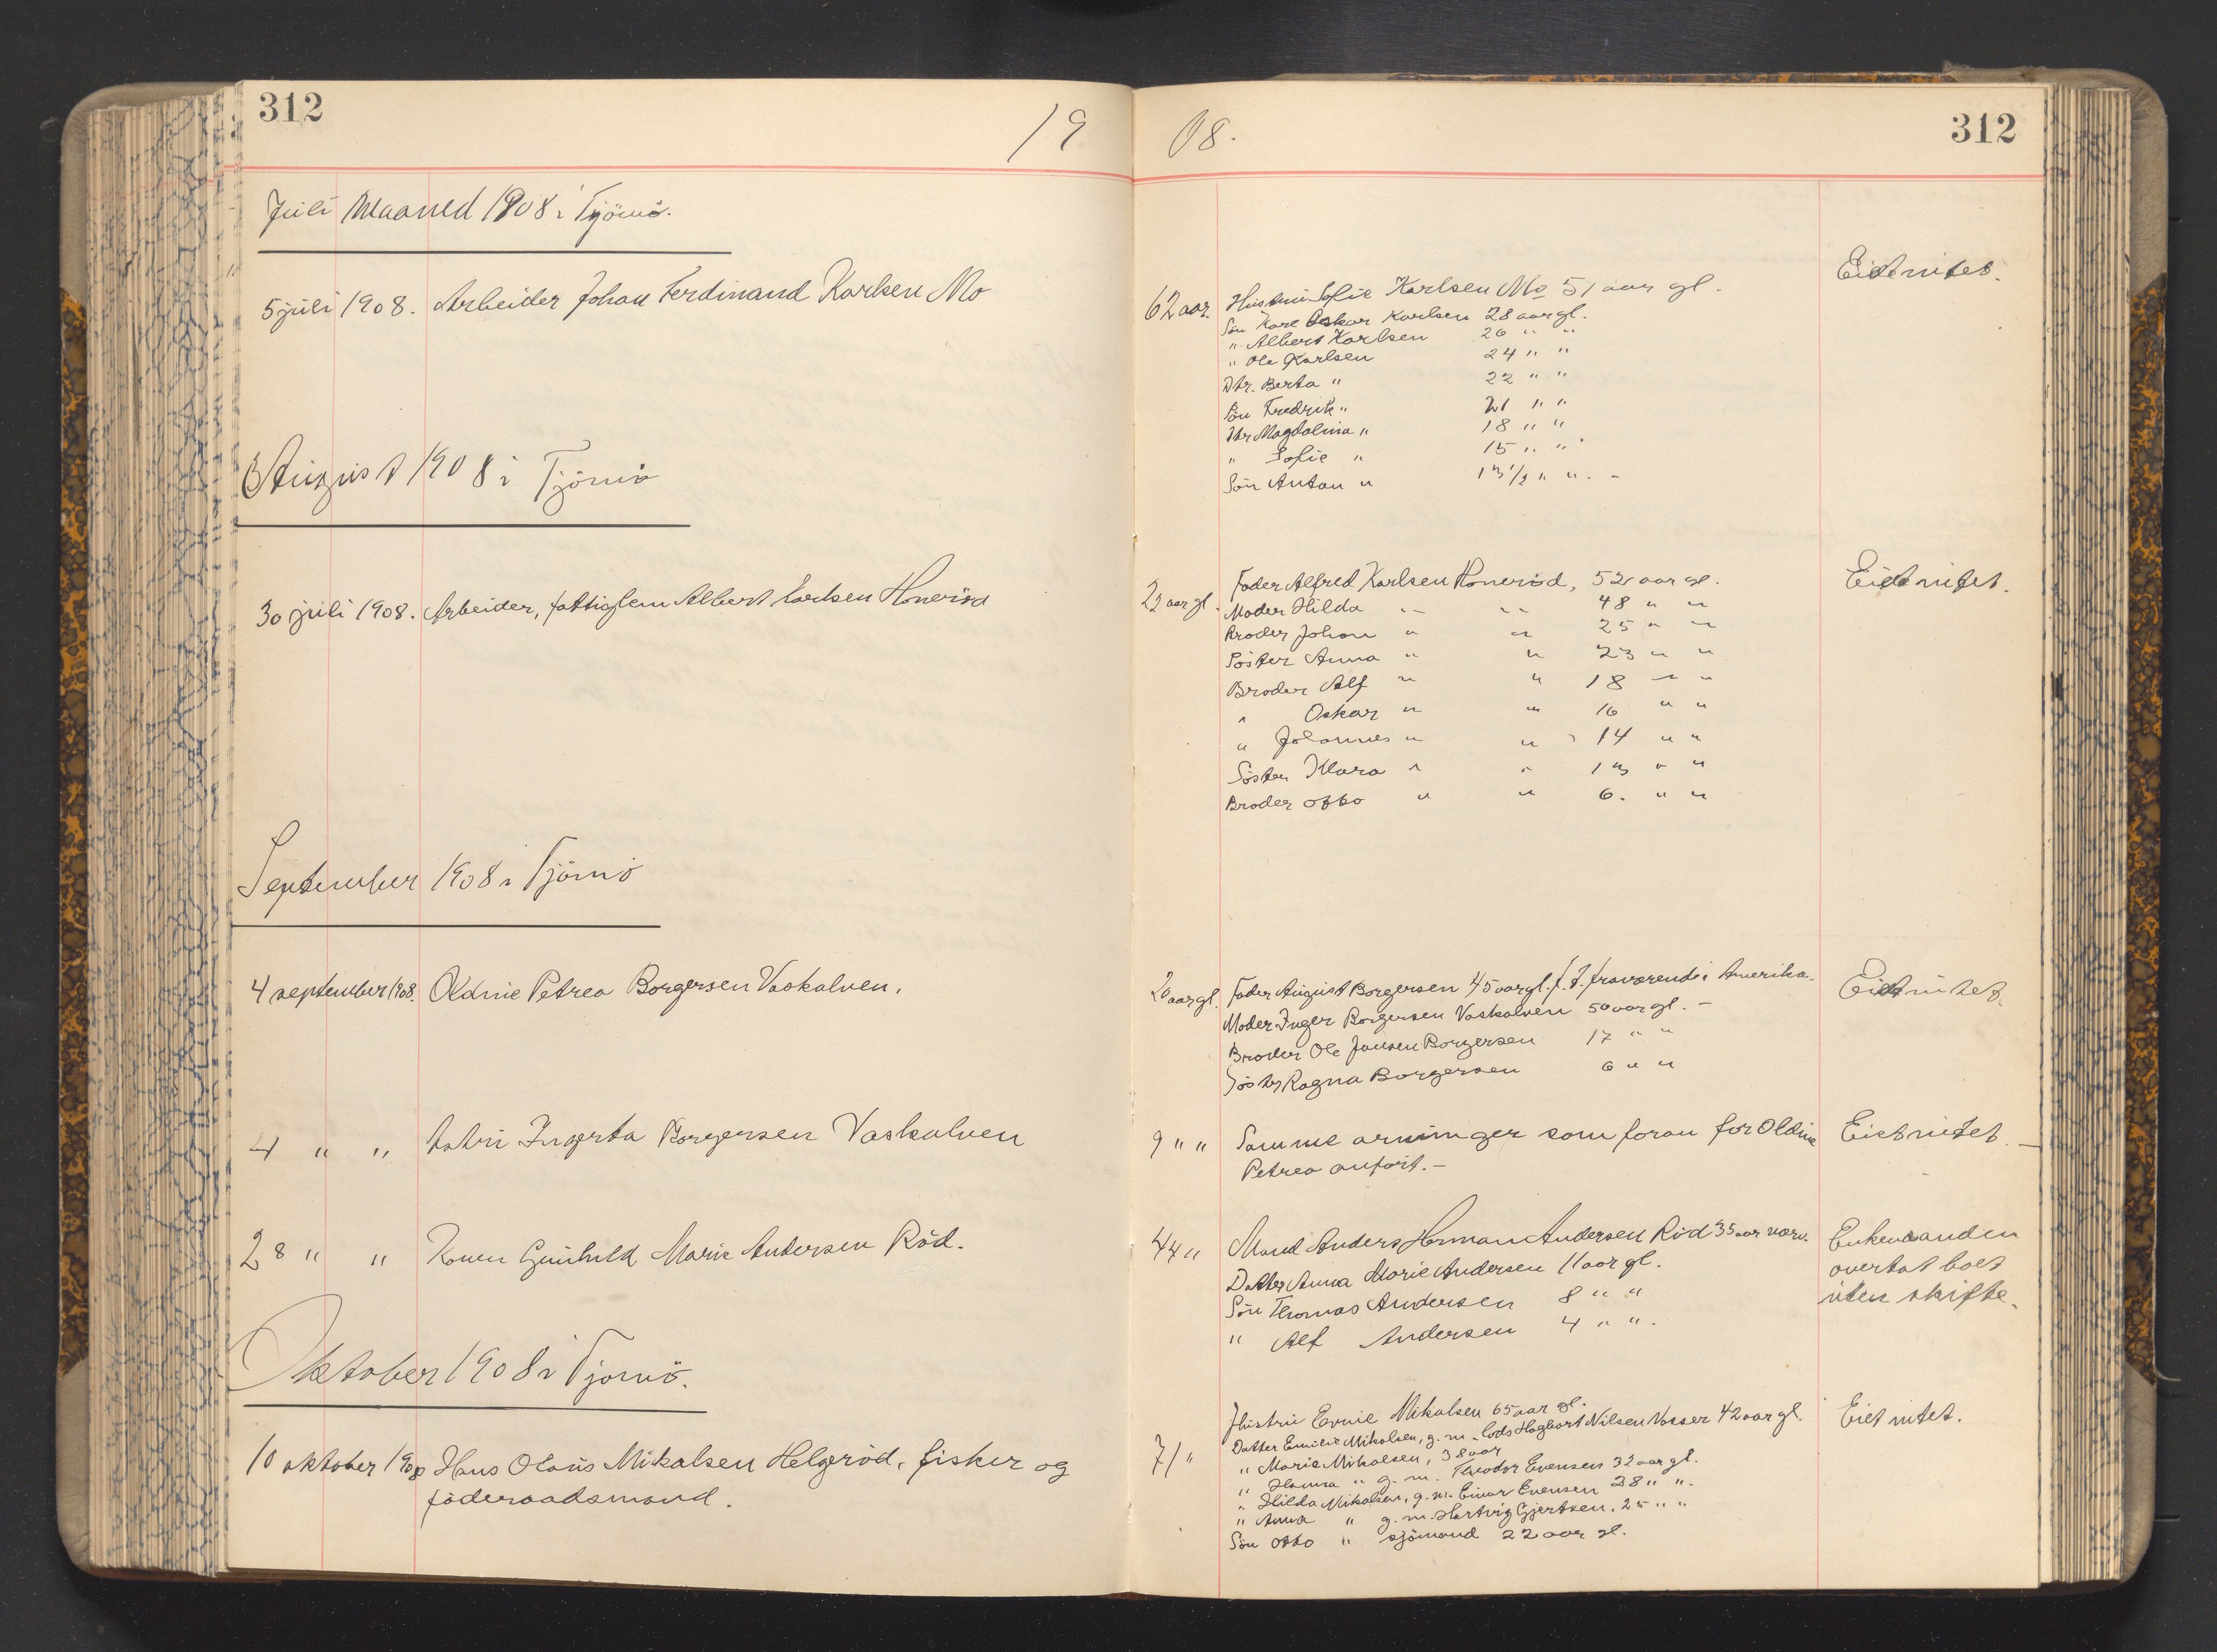 312
19
08.
312
Juli Maaned 1908 i Tjömö.
5 juli 1908. Arbeider Johan Ferdinand Karlsen Mo
62 aar. Hustru Sofie Karlsen Mo 51 aar gl.
Eiet intet.
Sön Karl Oskar Karlsen 28 aar gl.
" Albert Karlsen 26 " "
" Ole Karlsen 24 " "
Dtr. Berta " 22 " "
Sön Fredrik " 21 " "
Dtr Magdalina " 18 " "
" Sofie " 15 " "
Sön Anton " 13 1/2 " " . -
August 1908 i Tjömö
30 juli 1908. Arbeider, fattiglem Albert Karlsen Honeröd
22 aar gl. Fader Alfred Karlsen Honeröd, 52 aar gl.
Eiet intet.
Moder Hilda " " 48 " "
Broder Johan " " 25 " "
Söster Anna " " 23 " "
Broder Alf " " 18 " "
" Oskar " " 16 " "
" Johannes " " 14 " "
Söster Klara " " 13 " "
Broder Otto " " 6. " "
September 1908 i Tjömö
4 september 1908. Oldine Petrea Borgersen Vaskalven.
20 aar gl. Fader August Borgersen 45 aar gl. f. T. fraværende i Amerika.
Eiet intet.
Moder Inger Borgersen Vaskalven 50 aar gl. -
Broder Ole Jansen Borgersen 17 " "
Söster Ragna Borgersen 6 " "
4 " " Ingerta Borgersen Vaskalven
9 " " Samme arvinger som foran for Oldine
Petrea anfört. -
Eiet intet. -
28 " " Konen Gunhild Marie Andersen Röd.
44 " Mand Anders Herman Andersen Röd 35 aar
Datter Anna Marie Andersen 11 aar gl.
Sön Thomas Andersen 8 " "
" Alf Andersen 4 " " .
Enkemanden
overtat boet
uten skifte.
Oktober 1908 i Tjömö.
10 oktober 1908 Hans Olaus Mikalsen Helgeröd, fisker og
föderaadsmand.
71 "
Hustru Mikalsen 65 aar gl.
Datter Emilie Mikalsen, g. m. Lods Hagbart Nilsen Vasser 42 aar gl.
" Marie Mikalsen, 38 aar
" Hanna " g. m. Theodor Evensen 32 aar gl.
" Hilda Mikalsen, g. m. Einar Evensen 28 " " .
" Anna " g. m. Hartvig Gjertsen. 25 " "
Sön Otto " sjömand 22 aar gl.
Eiet intet.